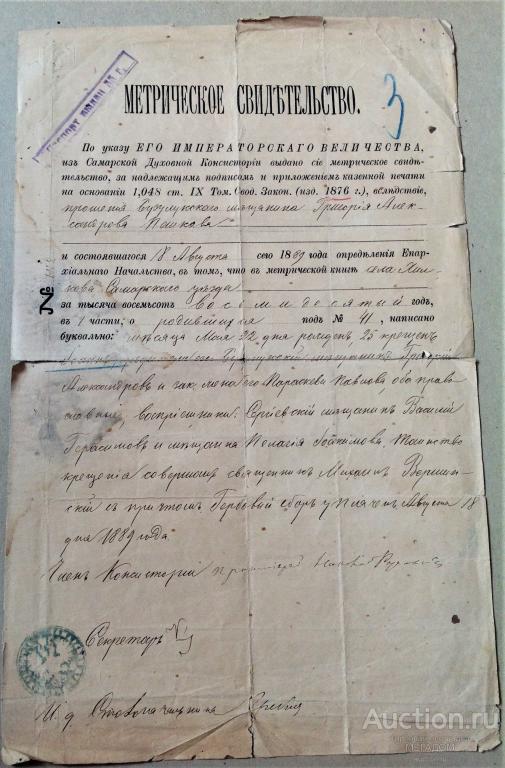 МЕТРИЧЕСКОЕ СВИДѢТЕЛЬСТВО.
3
По указу ЕГО ИМПЕРАТОРСКАГО ВЕЛИЧЕСТВА,
изъ Самарской Духовной Консисторіи выдано сіе метрическое свидѣ-
тельство, за надлежащимъ подписомъ и приложеніемъ казенной печати
на основаніи 1,048 ст. IX Том. Свод. Закон. (изд. 1876 г.), вслѣдствіе,
прошенія Бузулукскаго мѣщанина Григорія Алек-
сандрова
и состоявшагося 18 Августа сего 1889 года опредѣленія Епар-
хіальнаго Начальства, въ томъ, что въ метрической книгѣ села
Самарскаго уѣзда
за тысяча восемьсотъ восемидесятый годъ,
въ 1 части, о родившихся подъ № 41, написано
буквально: мѣсяца Мая 22 дня рожденъ 25 крещенъ
№
Бузулукскій мѣщанинъ Григорій
Александровъ и зак. жена его Параскева Павлова, оба право-
славные, воспріемники: Сергіевскій мѣщанинъ Василій
Герасимовъ и мѣщанка Пелагія Іоакимова. Таинство
крещенія совершилъ священникъ Михаилъ
съ причтомъ. Гербовый сборъ уплаченъ. Августа 18
дня 1889 года.
Членъ Консисторіи протоіерей
Секретарь
И. д. Столоначальника
Auction.ru
МЕГАДОМ